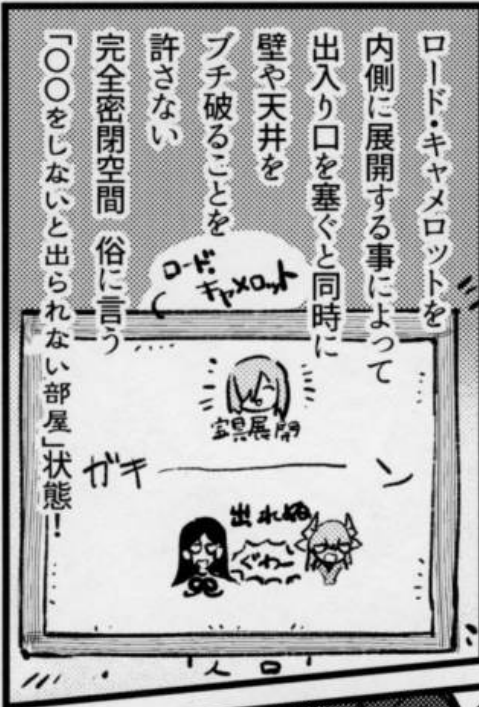 ロード・キャメロットを
内側に展開する事によって
出入り口を塞ぐと同時に
壁や天井を
ブチ破ることを
許さない
完全密閉空間 俗に言う
「○○をしないと出られない部屋」状態!
ロード・
キャメロット
宝具展開
ガキーン
出れぬ
ぐわー
入口